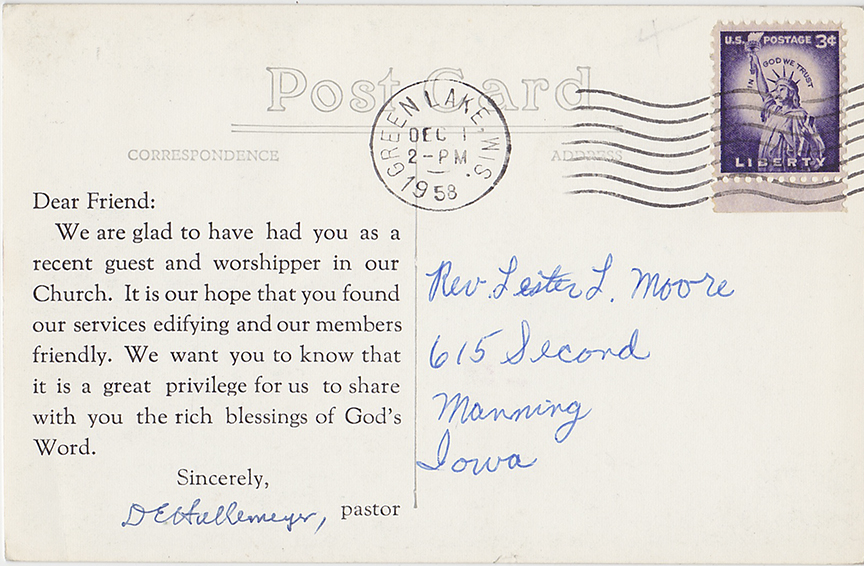 Post Card
U.S. POSTAGE 3¢
IN GOD WE TRUST
LIBERTY
GREEN LAKE, WIS.
DEC 1
2-PM
1958
CORRESPONDENCE
ADDRESS
Dear Friend:
We are glad to have had you as a
recent guest and worshipper in our
Church. It is our hope that you found
our services edifying and our members
friendly. We want you to know that
it is a great privilege for us to share
with you the rich blessings of God's
Word.
Sincerely,
pastor
Rev. Lester L. Moore
615 Second
Manning
Iowa